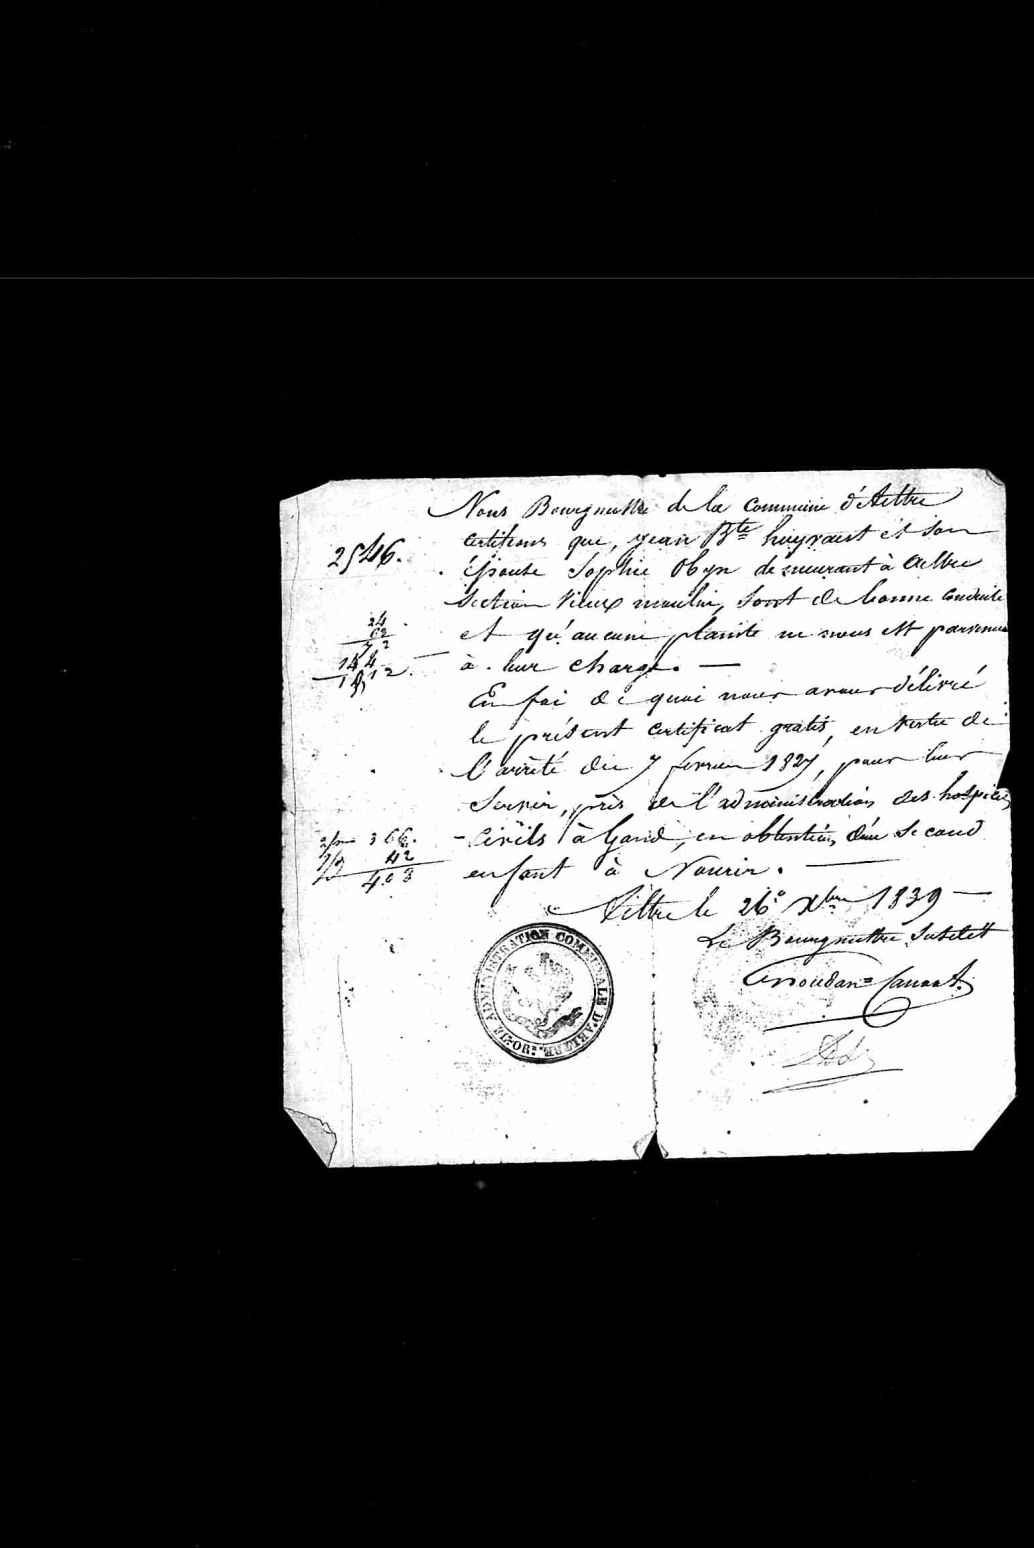 Nous Bourgmettre de la Commune d'Aeltre
certifions que, jean Bte huyvaert et son
épouse Sophie Obyn demeurant à Aeltre
Section Vieux moulin, sont de bonne conduite
et qu'aucune plainte ne nous est parvenue
à leur charge. —
En foi de quoi nous avons délivré
le présent certificat gratis, en vertu de
l'arrêté du 7 fevrier 1827, pour leur
Servir, près de l'administration des hospices
Civils à Gand, en obtention d'un second
enfant à Nourir. —
Aeltre le 26e Xbre 1839 —
Le Bourgmettre Substitt
2546.
24
63
72
144
1512.
366.
42
408
ADMINISTRATION COMMUNALE D'AELTRE